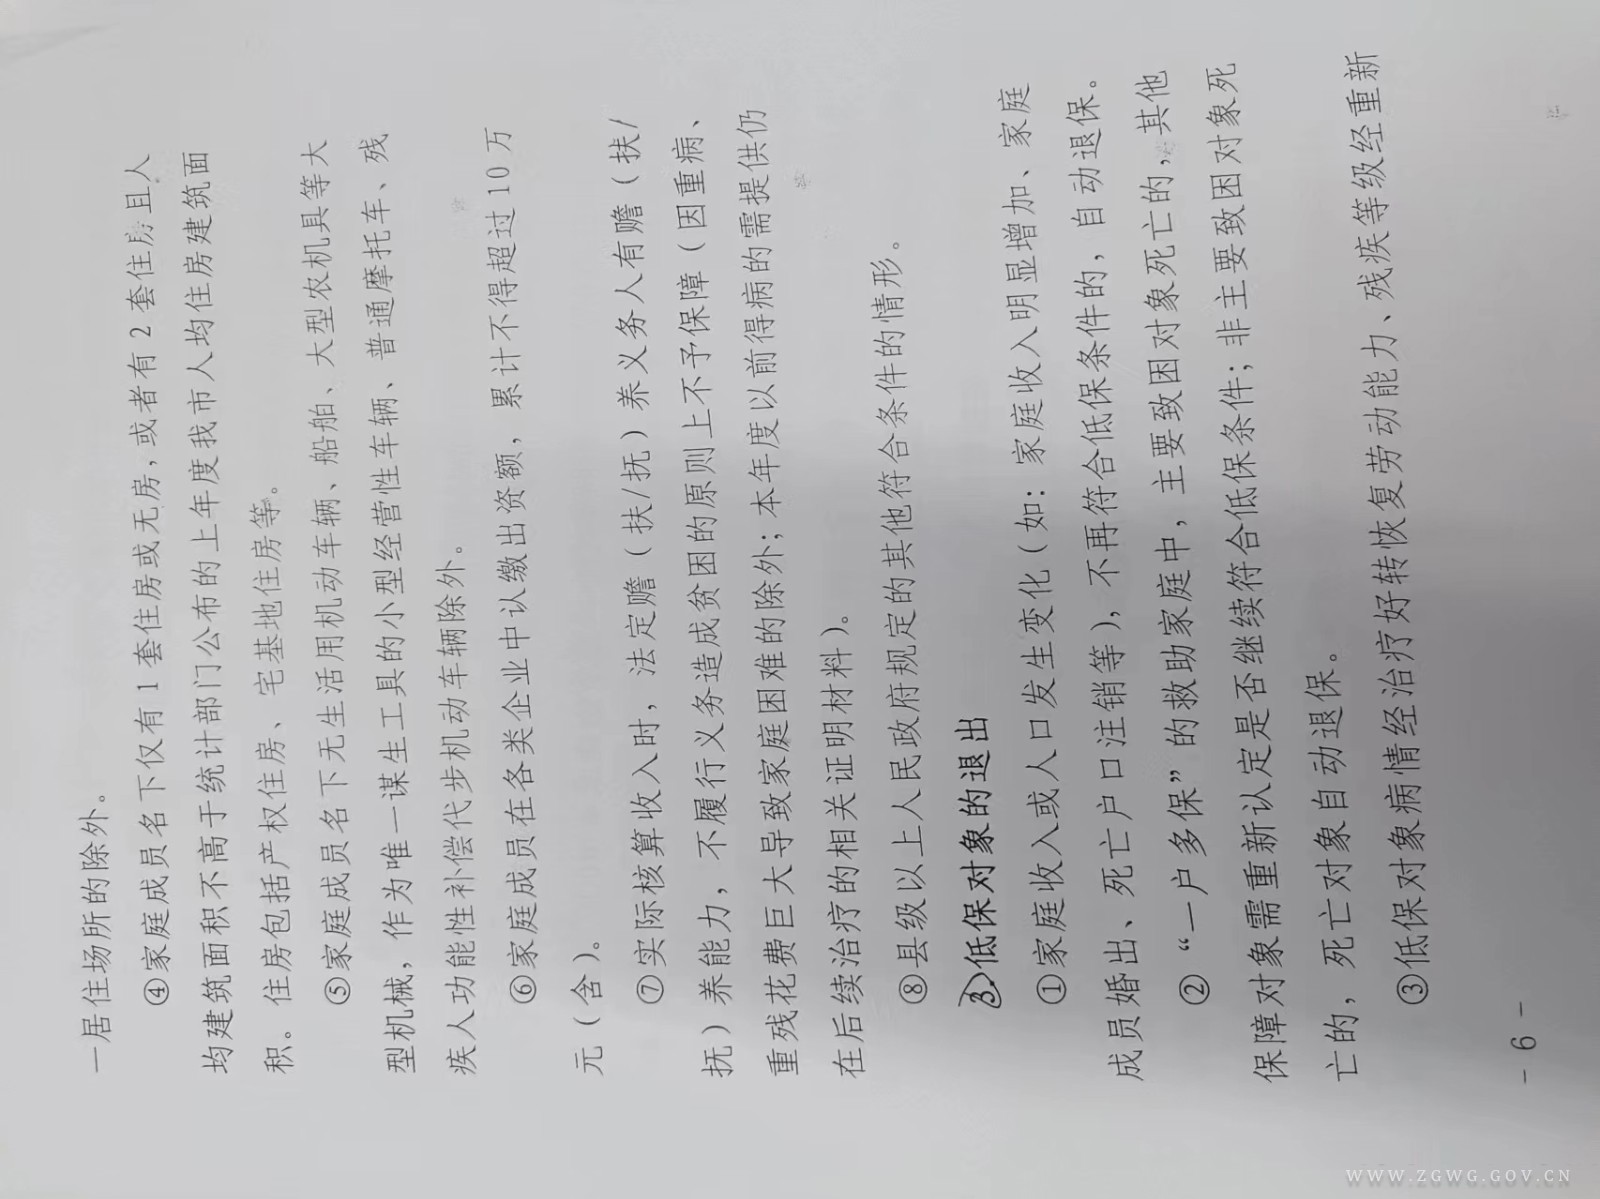 一居住场所的除外。
④家庭成员名下仅有1套住房或无房，或者有2套住房且人
均建筑面积不高于统计部门公布的上年度我市人均住房建筑面
积。住房包括产权住房、宅基地住房等。
⑤家庭成员名下无生活用机动车辆、船舶、大型农机具等大
型机械，作为唯一谋生工具的小型经营性车辆、普通摩托车、残
疾人功能性补偿代步机动车辆除外。
⑥家庭成员在各类企业中认缴出资额，累计不得超过10万
元（含）。
⑦实际核算收入时，法定赡（扶/抚）养义务人有赡（扶/
抚）养能力，不履行义务造成贫困的原则上不予保障（因重病、
重残花费巨大导致家庭困难的除外；本年度以前得病的需提供仍
在后续治疗的相关证明材料）。
⑧县级以上人民政府规定的其他符合条件的情形。
3.低保对象的退出
①家庭收入或人口发生变化（如：家庭收入明显增加、家庭
成员婚出、死亡户口注销等），不再符合低保条件的，自动退保。
②“一户多保”的救助家庭中，主要致困对象死亡的，其他
保障对象需重新认定是否继续符合低保条件；非主要致困对象死
亡的，死亡对象自动退保。
③低保对象病情经治疗好转恢复劳动能力、残疾等级经重新
- 6 -
WWW.ZGWG.GOV.CN